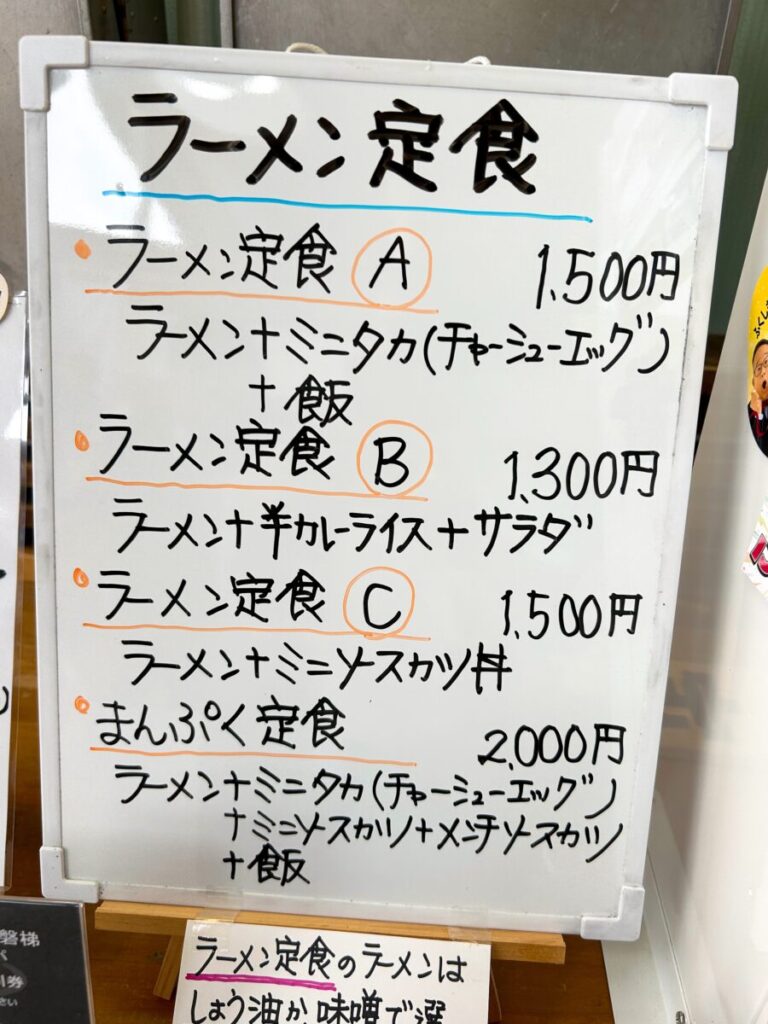 ラーメン定食
・ラーメン定食 A 1,500円
ラーメン+ミニタカ(チャーシューエッグ)
+飯
・ラーメン定食 B 1,300円
ラーメン+半カレーライス+サラダ
・ラーメン定食 C 1,500円
ラーメン+ミニソースカツ丼
・まんぷく定食 2,000円
ラーメン+ミニタカ(チャーシューエッグ)
+ミニソースカツ+メンチソースカツ
+飯
ラーメン定食のラーメンは
しょう油か、味噌で選
磐梯
券
さい